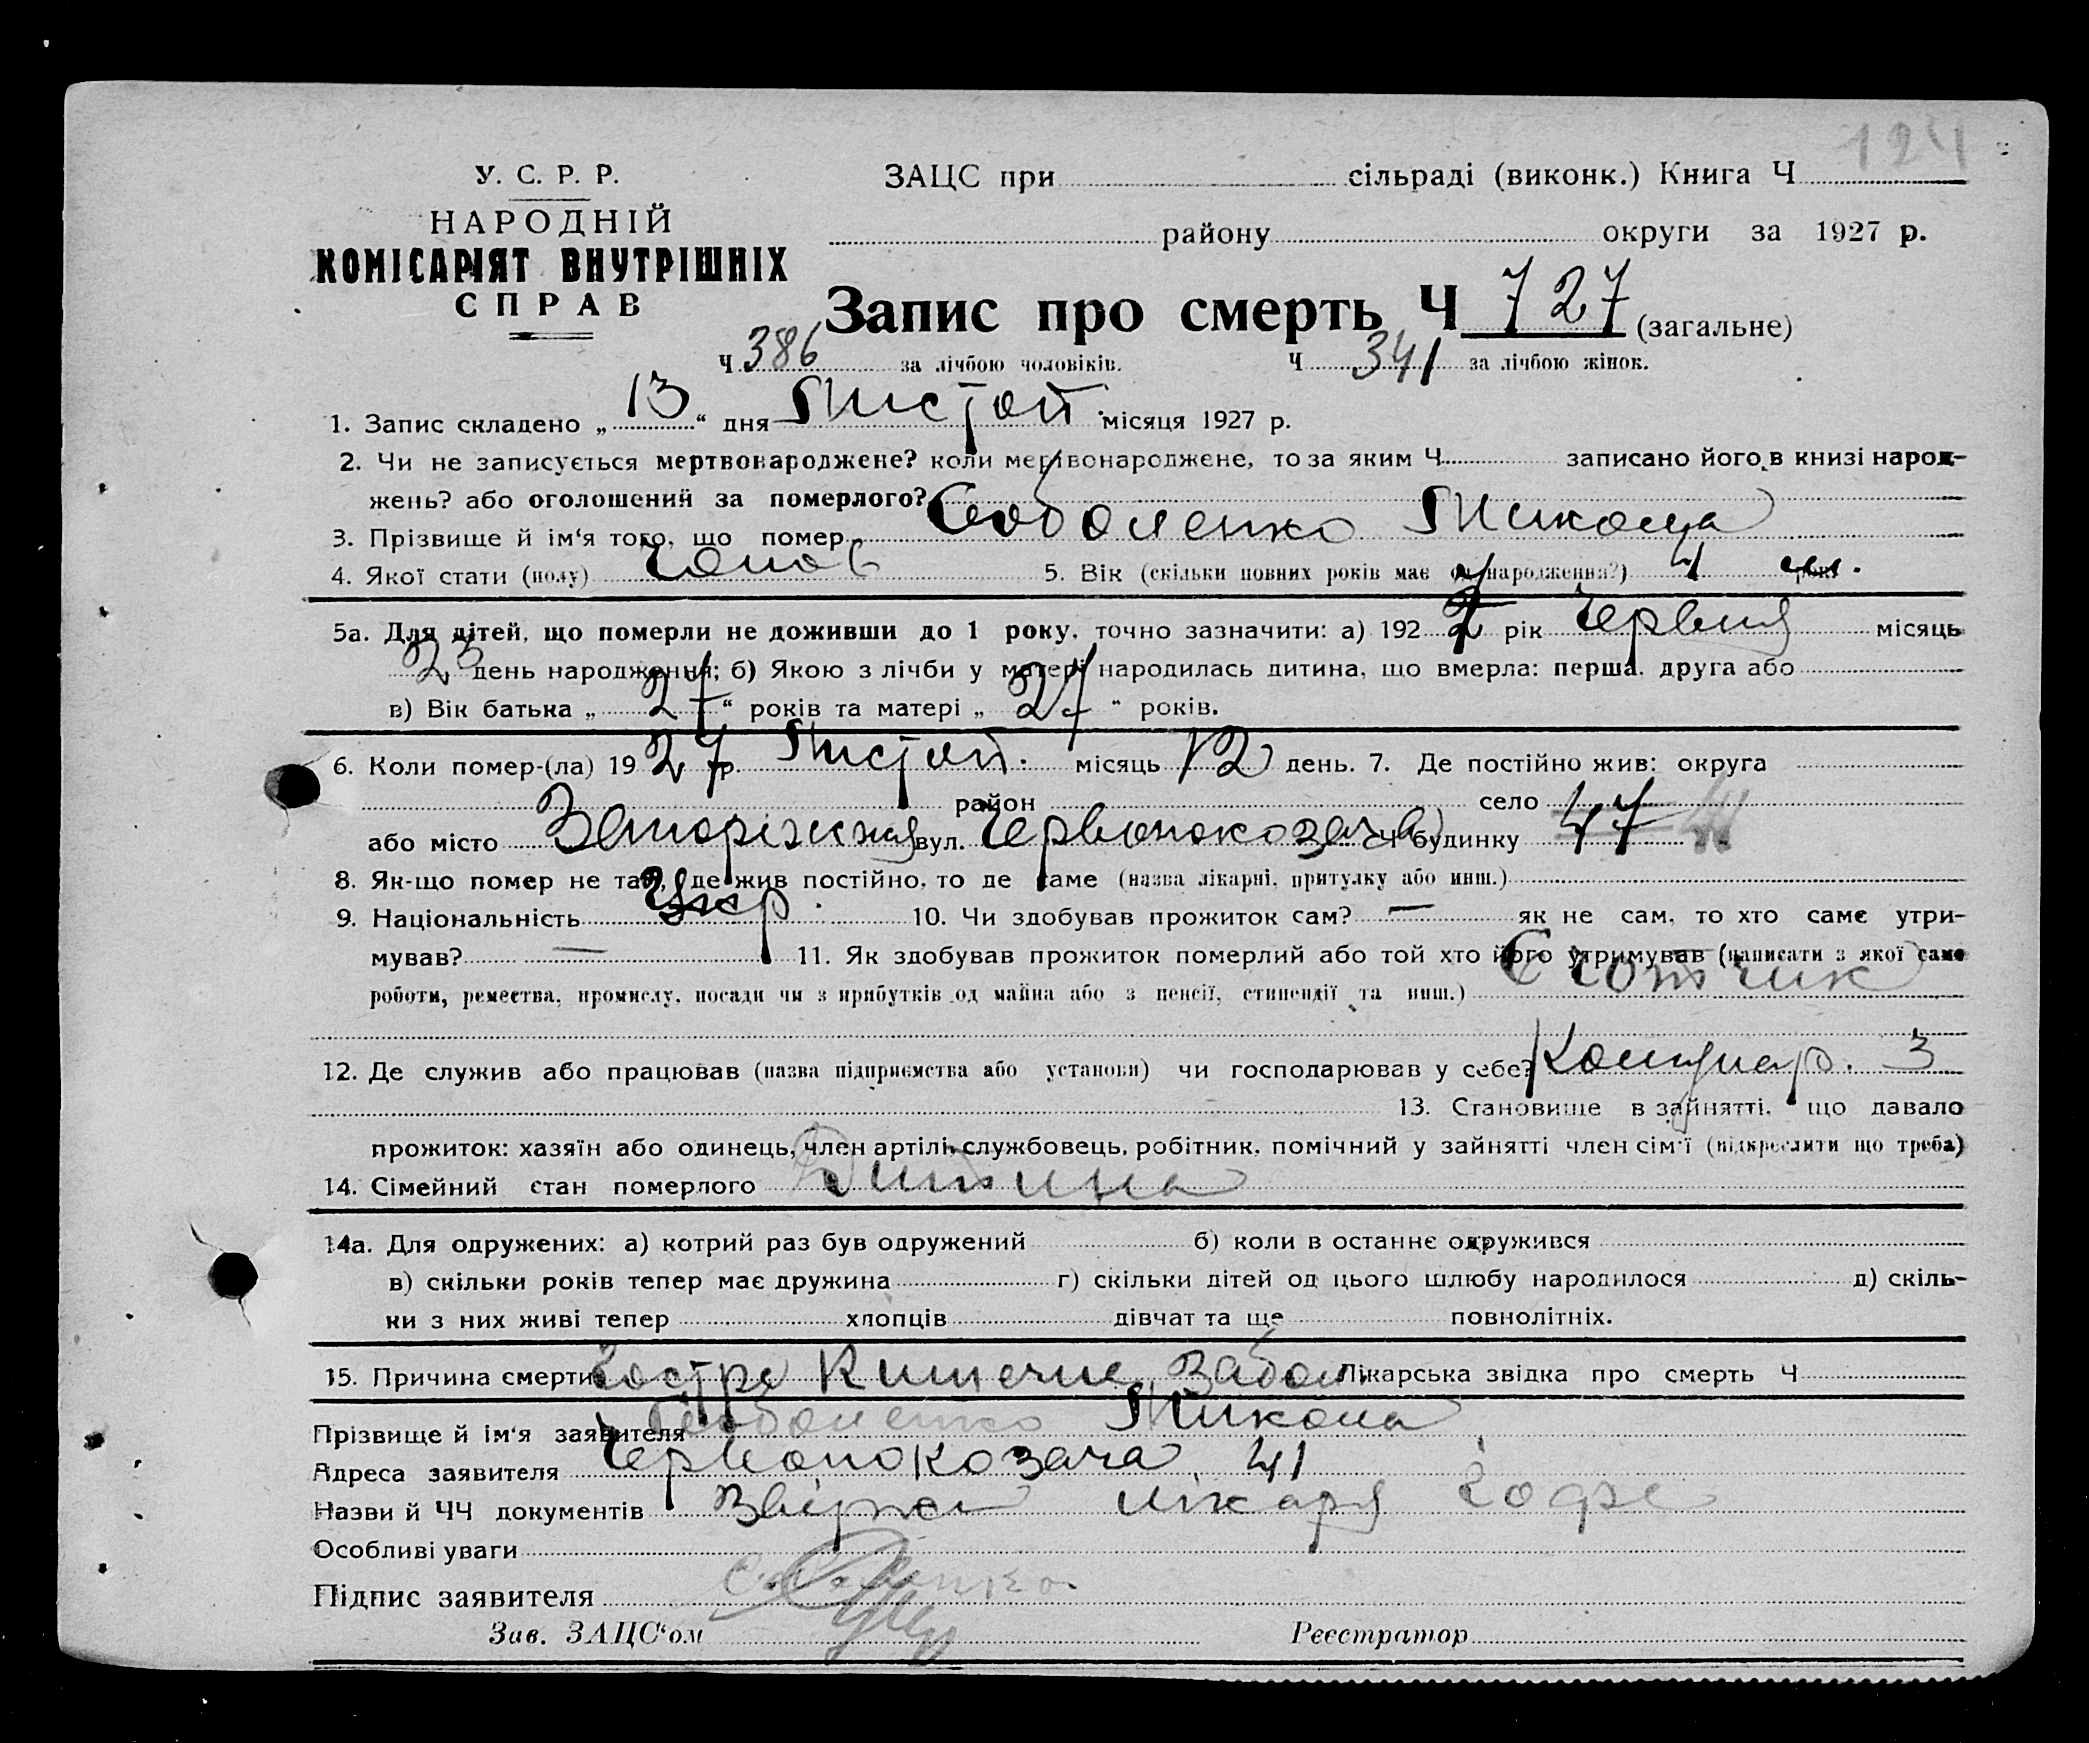 124
У. С. Р. Р.
НАРОДНІЙ
КОМІСАРІЯТ ВНУТРІШНІХ
СПРАВ
ЗАЦС при сільраді (виконк.) Книга Ч
району округи за 1927 р.
Запис про смерть Ч 727 (загальне)
Ч 386 за лічбою чоловіків. Ч 341 за лічбою жінок.
1. Запис складено „ 13 “ дня Листоп. місяця 1927 р.
2. Чи не записується мертвонароджене? коли мертвонароджене, то за яким Ч записано його в книзі народ-
жень? або оголошений за померлого?
3. Прізвище й ім‘я того, що помер Соболенко Микола
4. Якої стати (полу) Чолов 5. Вік (скільки повних років має од народження?) 4 м.
5а. Для дітей, що померли не доживши до 1 року, точно зазначити: а) 1927 рік Червня місяць
23 день народження; б) Якою з лічби у матері народилась дитина, що вмерла: перша, друга або
в) Вік батька „ 27 “ років та матері „ 27 “ років.
6. Коли помер-(ла) 1927 р. Листоп. місяць 12 день. 7. Де постійно жив: округа
район село
або місто Запоріжжя вул. Червонокозача Ч будинку 47
8. Як-що помер не там, де жив постійно, то де саме (назва лікарні, притулку або инш.)
9. Національність Укр. 10. Чи здобував прожиток сам? — як не сам, то хто саме утри-
мував? — 11. Як здобував прожиток померлий або той хто його утримував (написати з якої само
роботи, ремества, промислу, посади чи з прибутків од майна або з пенсії, стипендії та инш.) Счотчик
12. Де служив або працював (назва підприємства або установи) чи господарював у себе? Комунар. 3
13. Становище в зайнятті, що давало
прожиток: хазяїн або одинець, член артілі, службовець, робітник, помічний у зайнятті член сім‘ї (підкреслити що треба)
14. Сімейний стан померлого Дитина
14а. Для одружених: а) котрий раз був одружений б) коли в останнє одружився
в) скільки років тепер має дружина г) скільки дітей од цього шлюбу народилося д) скіль-
ки з них живі тепер хлопців дівчат та ще повнолітніх.
15. Причина смерти Гостре Кишечне Забол. Лікарська звідка про смерть Ч
Прізвище й ім‘я заявителя Соболенко Микола
Адреса заявителя Червонокозача 41
Назви й ЧЧ документів лікаря
Особливі уваги
Підпис заявителя
Зав. ЗАЦС‘ом Реєстратор